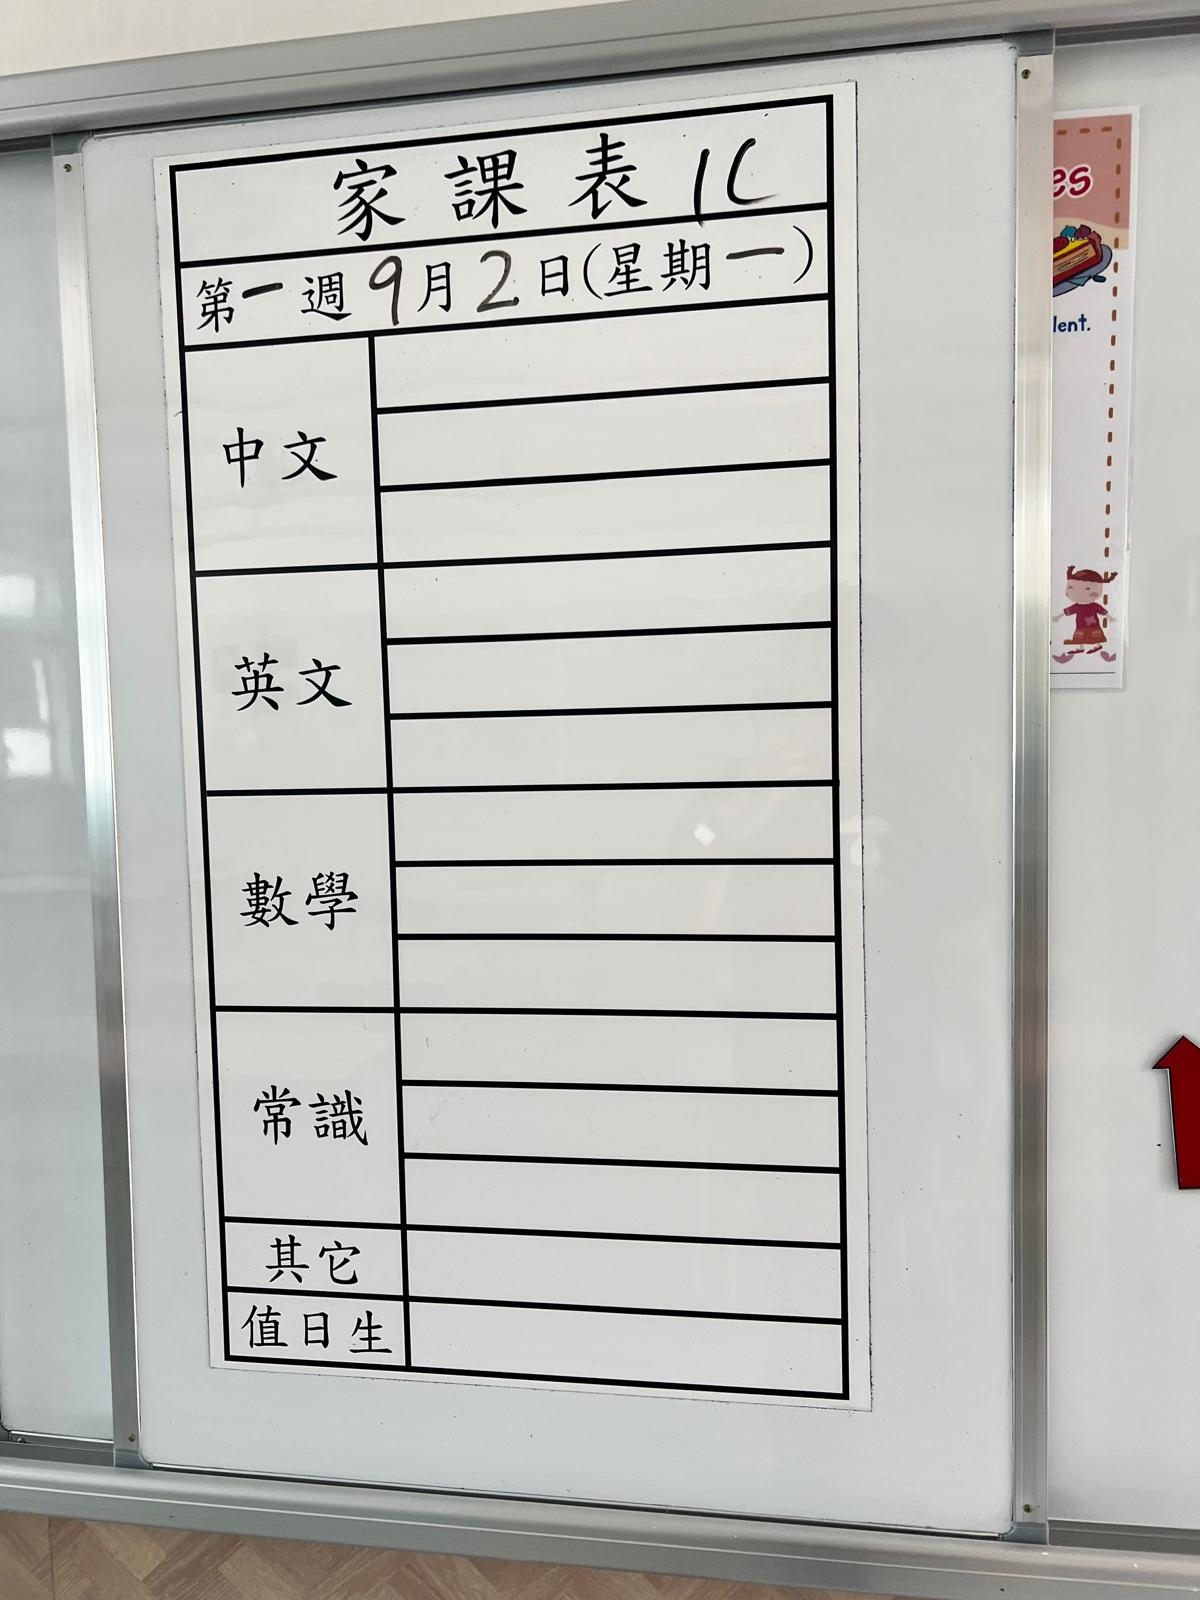 家課表 1C
第一週9月2日(星期一)
中文
英文
數學
常識
其它
值日生
es
lent.